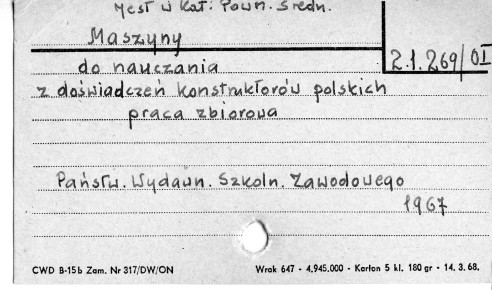 Jest w Kat. Pown. Średn.
Maszyny
2.1.269/OI
do nauczania
z doświadczeń konstruktorów polskich
praca zbiorowa
Państw. Wydawn. Szkoln. Zawodowego
1967
CWD B-15b Zam. Nr 317/DW/ON
Wrak 647 - 4.945.000 - Karton 5 kl. 180 gr - 14. 3. 68.